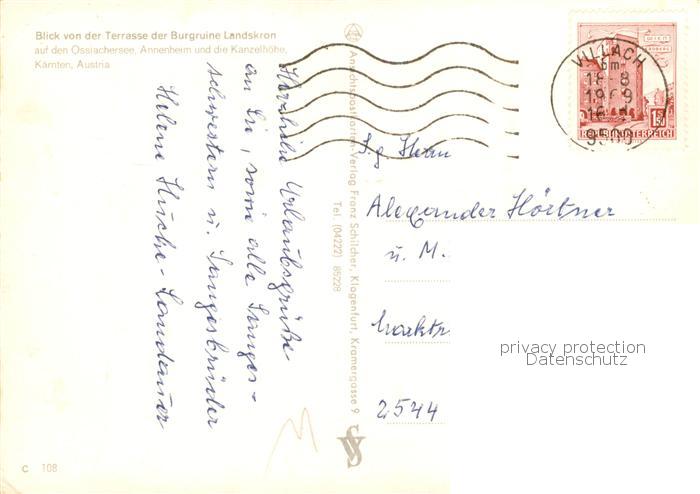 Blick von der Terrasse der Burgruine Landskron
auf den Ossiachersee, Annenheim und die Kanzelhöhe,
Kärnten, Austria
Herzliche Urlaubsgrüße
an Sie, sowie alle Sanges-
schwestern u. Sangesbrüder
Helene
C 108
Ansichtspostkarten-Verlag Franz Schilcher, Klagenfurt, Kramergasse 9
Tel. (04222) 85228
VILLACH
18 8
1969
9500
WIEN
1.50
REPUBLIK ÖSTERREICH
S.g. Herrn
Alexander Hörtner
u. M.
Marktr.
2544
privacy protection
Datenschutz